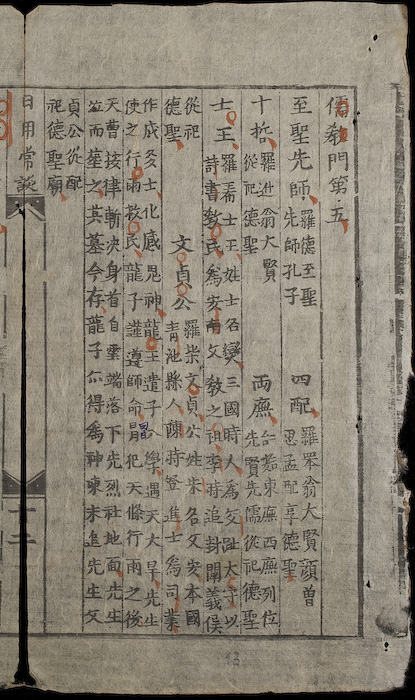 儒教門第五
至聖先師
羅德至聖
先師孔子
四配
翁大賢顔曾
思孟配享德聖
十哲
羅進翁大賢
從祀德聖
兩廡
東廡西廡列位
先賢先儒從祀德聖
士王
士王姓士名燮三國時人爲交趾大守以
詩書教民爲安南文教之祖李時追封闡義侯
從祀
德聖
文貞公
羅柴文貞公姓朱名文安本國
青池縣人陳時登進士爲司業
作成多士化感鬼神龍王遣子入學遇天大旱先生
使之行雨救民龍子謹遵師命犯天條行雨之後
天曹按律斬决身首自雲端落下先烈社地面先生
泣而塟之其墓今存龍子亦得爲神先生文
貞公從配
祀德聖廟
日用常談
十二